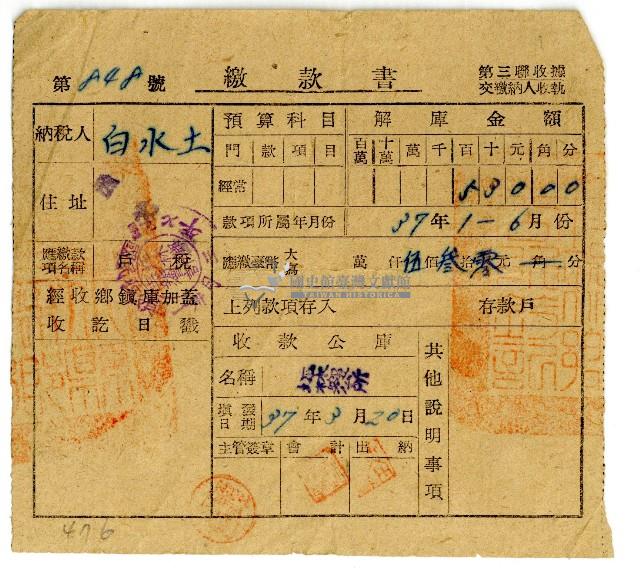 第848號
繳款書
第三聯收據
交繳納人收執
納稅人 白水土
預算科目 解庫金額
門 款 項 目 百萬 十萬 萬 千 百 十 元 角 分
經常 53000
住址
款項所屬年月份 37年1-6月份
應繳款項名稱 戶稅
應繳臺幣大寫 萬仟伍佰叁拾零元一角分
經收鄉鎮庫加蓋
收訖日戳
上列款項存入 存款戶
收款公庫
名稱
其他說明事項
填發日期 37年3月20日
主管簽章 會計 出納
476
國史館臺灣文獻館
TAIWAN HISTORICA